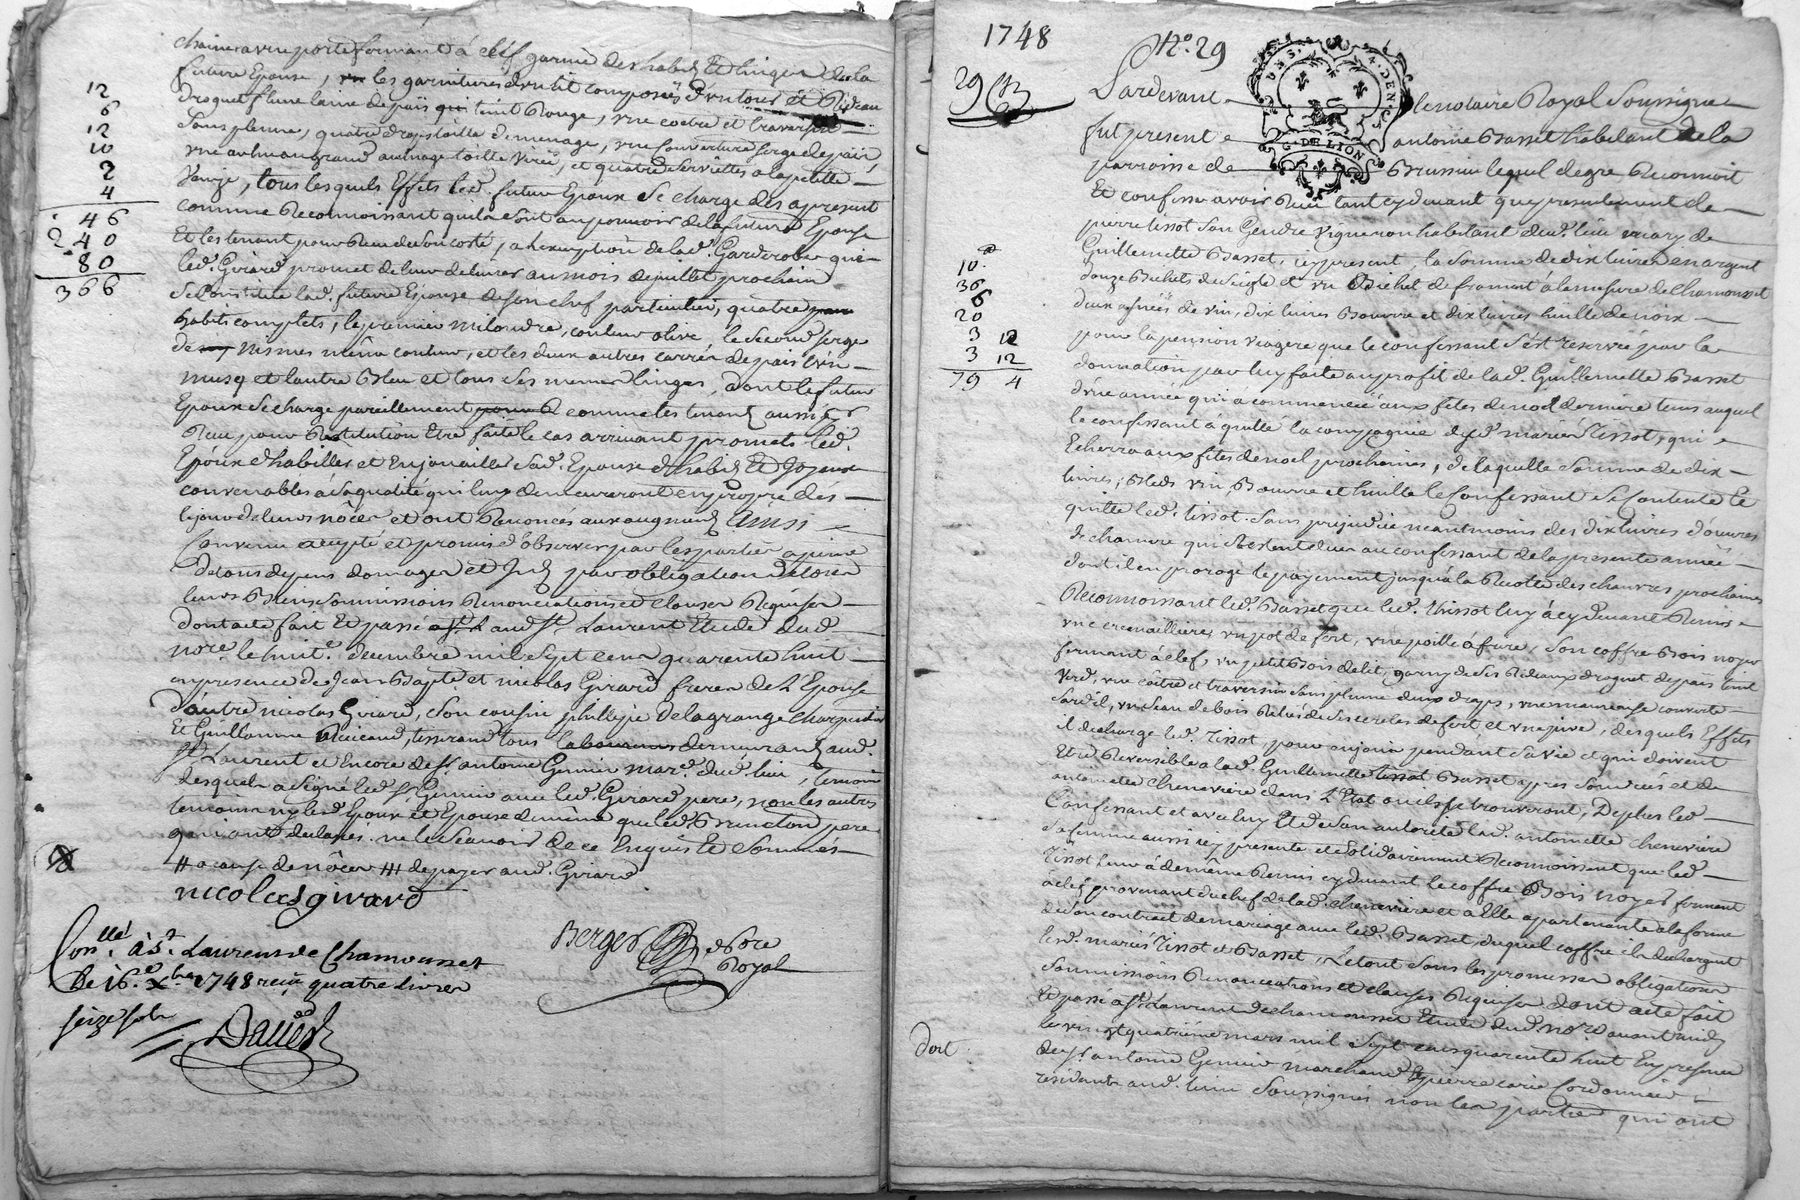 chaine avec porte fermant à clef garnie des habits et linges de la
future Epouse, les garnitures d'un lit composées d'un tour et Rideau
droguet fleuret laine de païs teint Rouge, une coetre et traversin
sans plume, quatre draps toille de menage, une couverture serge de païs,
une aulme grand menage toille Virée, et quatre serviettes a la petite
Venize, tous lesquels Effets led. futur Epoux se charge dès apresent
comme Reconnoissant qu'ils sont au pouvoir de la future Epouse
Et les tenant pour Reçu de son costé, a l'exemption de lad. Garderobe que
led. Girard promet de leur delivrer au mois de juillet prochain
Se Constitue lad. future Epouse de son chef particulier, quatre
habits complets, le premier miloudre, couleur olive, le second serge
de Nismes même couleur, et les deux autres carrés de païs l'un
musq et l'autre Bleu et tous ses menus linges, dont le futur
Epoux se charge pareillement comme les tenant aussi
Reçu pour Restitution etre faite le cas arrivant promets led.
Epoux d'habiller et Enjoüailler sad. Epouse d'habits et Joyaux
convenables à sa qualité qui luy demeureront en propre dès
le jour de leurs nôces et ont Renoncés aux augments Ainsi
Convenu accepté et promis d'observer par les parties a peine
de tous depens domages et Int. par obligation de tous
leurs Biens Soumissions Renonciations et clauses Requises
dont acte fait Et passé aud. St. Laurent Etude dud.
nore. le huite. decembre mil sept cent quarente huit
en presence de Jean Bapte. et nicolas Girard freres de l'Epouse
d'autre nicolas Girard, son cousin phillipe Delagrange charpentier
Et Guillaume tisserand tous demeurans aud.
St. Laurent et Encore de sr. antoine Genin mard. dud. lieu, temoins
desquels a signé led. sr. Genin avec led. Girard pere, non les autres
temoins ny les Epoux et Epouse de meme que led. pere
qui ont declarés ne le scavoir de ce Enquis Et Sommés
# a cause de nôces ## de payer aud. Girard
nicolas girard
Berger nore Royal
Conllé à St. Laurens de Chamousset
Le 16e. Xbre 1748 reçu quatre livres
seize sols
12
6
12
10
2
4
46
240
80
366
1748
No. 29
29
G. DE LION
Pardevant le notaire Royal Soussigné
fut present antoine Basset habitant de la
parroisse de Brussieu lequel de gré Reconnoit
Et confesse avoir Reçu tant cydevant que presentement de
pierre tissot son Gendre Vigneron habitant dud. lieu mary de
Guillemette Basset, icy present la somme de dix livres en argent
douze Bichets de seigle et un Bichet de froment à la mesure de Chamousset
deux asnées de vin, dix livres Beurre et dix livres huille de noix
pour la pension viagere que le confessant s'est reservé par la
donnation par luy faite au profit de lad. Guillemette Basset
d'une année qui a commencée aux fetes de noel dernieres tems auquel
le confessant à quitté la compagnie desd. mariés Tissot, qui
Echerra aux fetes de noel prochaines, de laquelle somme de dix
livres, Bleds vin, Beurre et huille le Confessant se contente Et
quitte led. tissot. Sans prejudice neantmoins des dix livres d'œuvres
de chanvre qui Restent dües au confessant de la presente année
dont il en proroge le payement jusqu'à la Recolte des chanvres prochaines
Reconnoissant led. Basset que led. Thissot luy à cy devant Remis
une cremailliere, un pot de fert, une poille à frire, son coffre Bois noyer
fermant à clef, un petit Bois de lit, garny de ses Rideaux droguet de païs teint
Verd, une coitre et traversin sans plume deux draps, une mauvaise couverte
sardil, un seau de bois Relié de ses cercles de fert, et une juive, desquels Effets
il decharge led. Tissot, pour en jouir pendant sa vie et qui doivent
Etre Reversible a lad. Guillemette Basset apres son decés et de
antoinette Cheneviere dans l'Etat ou ils se trouveront, De plus led.
Confessant et avec luy Et de son autorité lad. antoinette cheneviere
sa femme aussi icy presente et Solidairement Reconnoissent que led.
Tissot leur à de même Remis cydevant le coffre Bois noyer fermant
à clef provenant du chef de lad. cheneviere et a Elle apartenante a la forme
de son contract de mariage avec led. Basset, duquel coffre ils dechargent
lesd. mariés Tissot et Basset, Le tout sous les promesses obligations
Soumissions Renonciations et clauses Requises Dont acte fait
Et passé a St. Laurent de chamousset Etude dud. Nore. avant midy
le vingt quatrieme mars mil sept cens quarente huit En presence
de sr. antoine Genin marchand Et pierre carié Cordonnier
residents aud. lieu Soussignés non les parties qui ont
10
36
6
20
3 12
3 12
79 4
dont